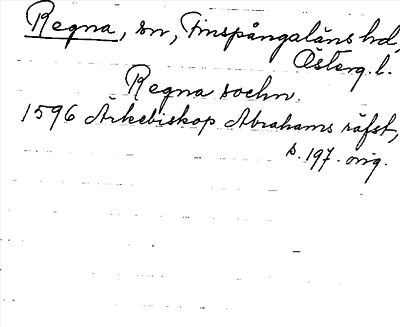 Regna, sn, Finspångaläns hd,
Österg. l.
Regna sochn.
1596 Ärkebiskop Abrahams räfst,
s. 197. orig.